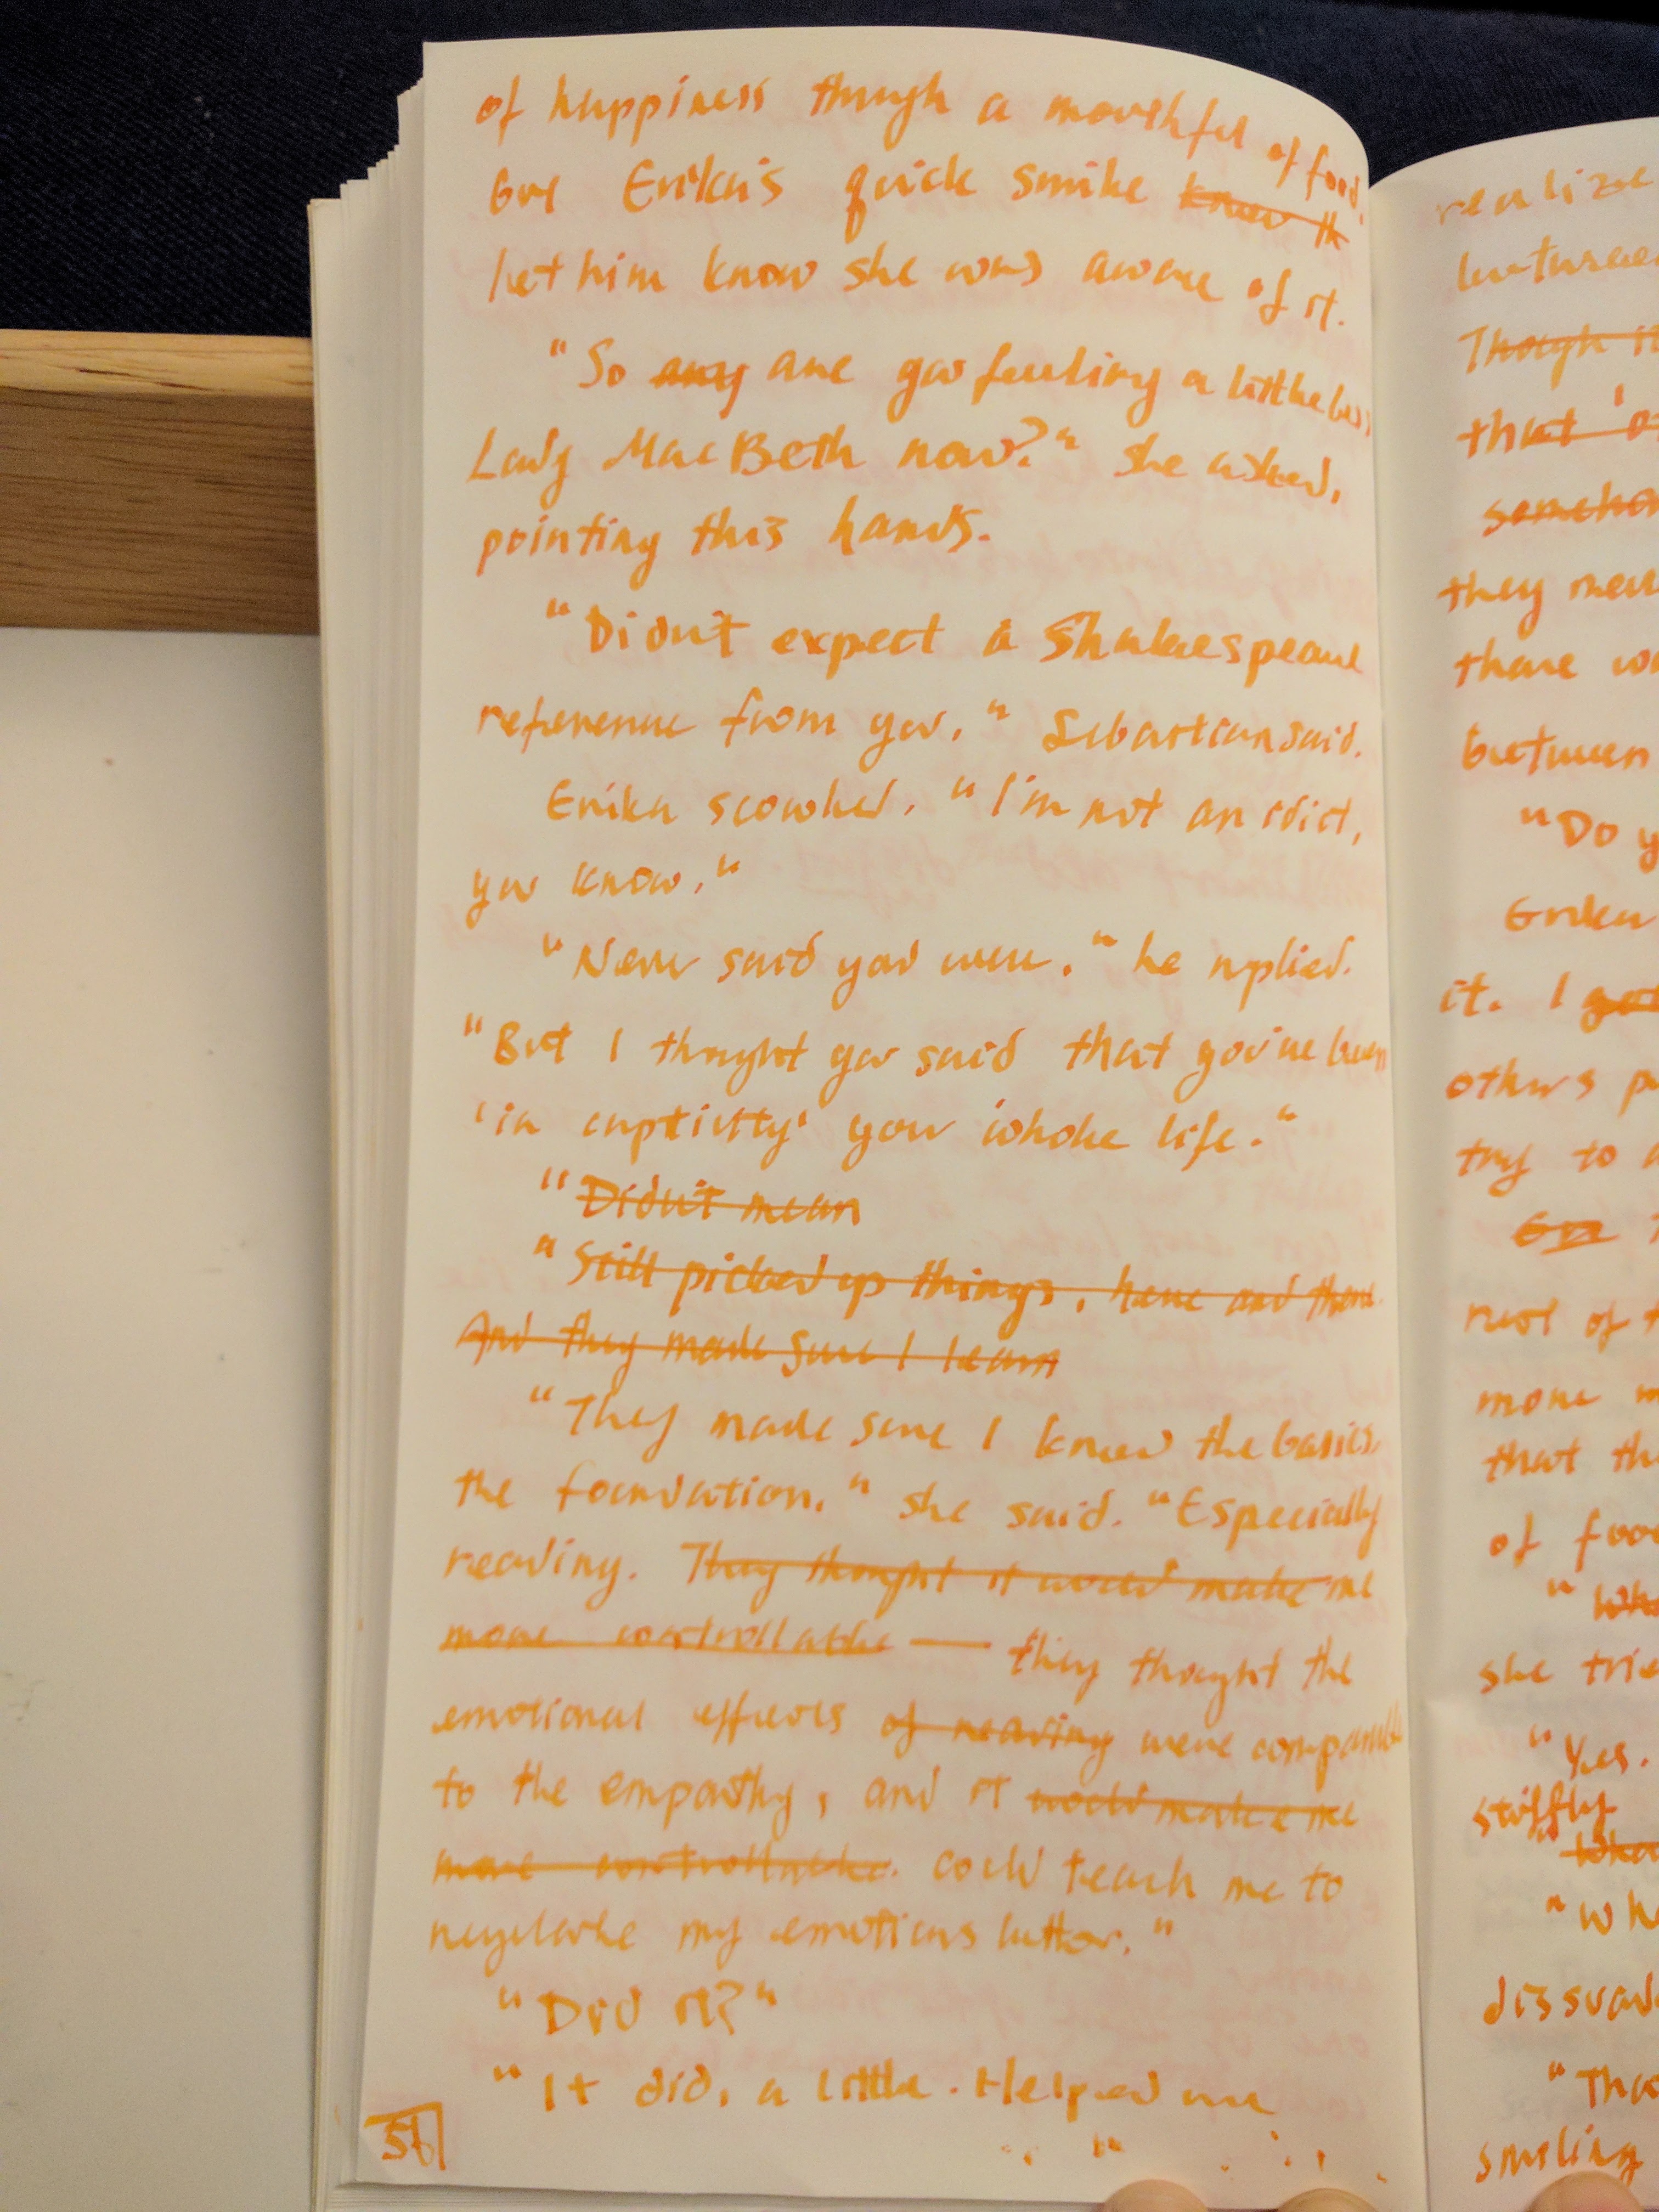 of happiness though a mouthful of food.
But Erika's quick smile know th
let him know she was aware of it.
"So any are you feeling a little less
Lady MacBeth now?" she asked,
pointing this hands.
"Didn't expect a Shakespeare
reference from you." Sebastian said.
Erika scowled. "I'm not an idiot,
you know."
"Never said you were." he replied.
"But I thought you said that you've been
'in captivity' your whole life."
"Didn't mean
"Still picked up things, here and there.
And they made sure I learn
"They made sure I knew the basics,
the foundation." she said. "Especially
reading. They thought it would make me
more controllable — they thought the
emotional effects of reading were comparable
to the empathy, and it would make me
more controllable. could teach me to
regulate my emotions better."
"Did it?"
"It did, a little. Helped me
56
realize
between
Though it
that
they
there
between
"Do y
Erika
it. I got
others
try to
rest of
more
that
of
she
"Yes.
stiffly
"
"Tha
smiling